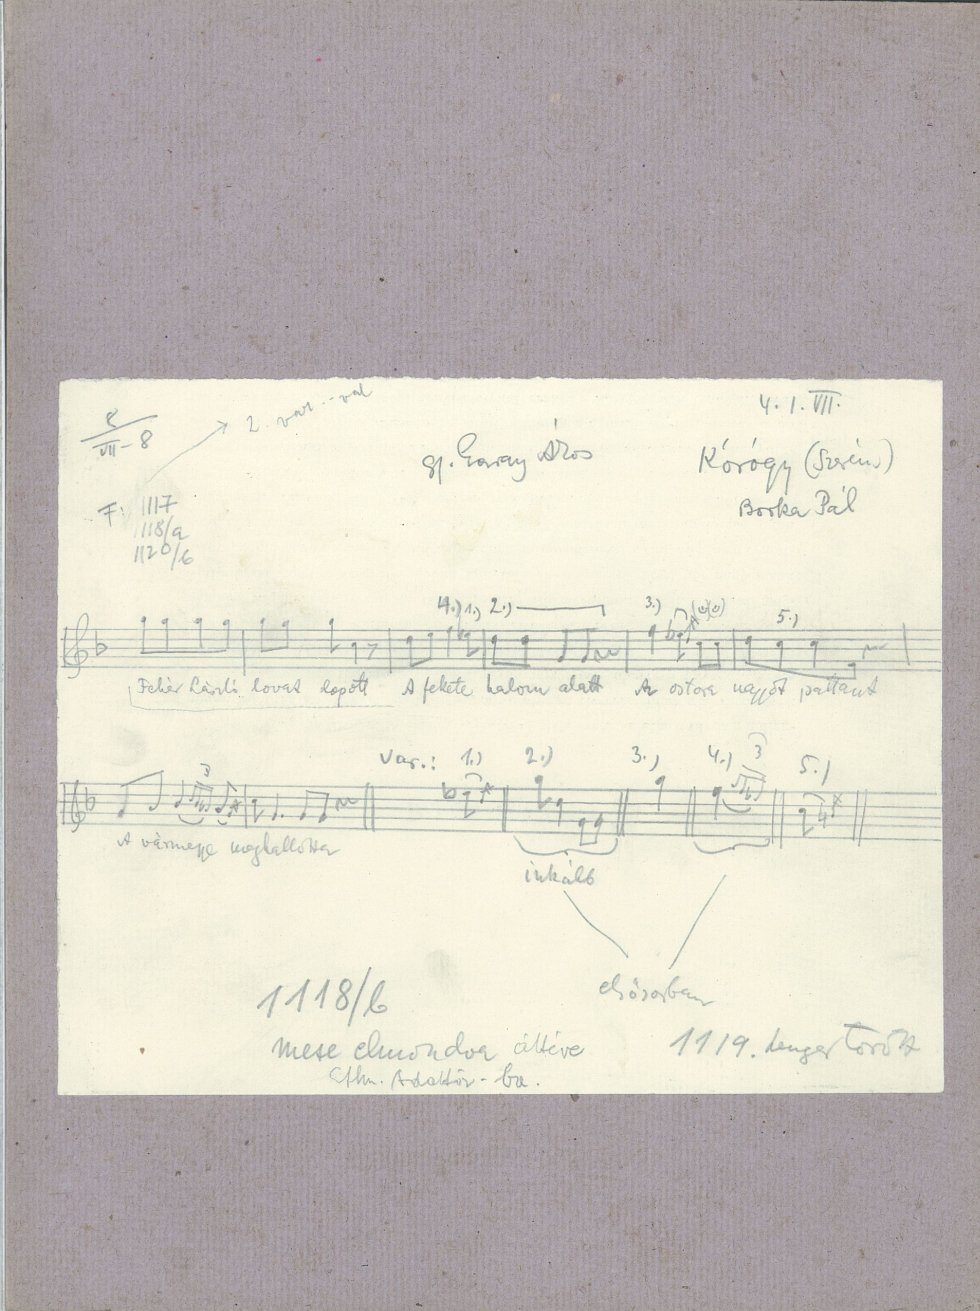 8
VII-8
2. var.-val
4. I. VII.
gj. Garay Ákos
Kórógy (Szerém)
Borka Pál
F: 1117
1118/a
1120/b
4.) 1.) 2.) 3.) 5.)
Fehér László lovat lopott A fekete halom alatt Az ostora nagyot pattant
3
var.: 1.) 2.) 3.) 4.) 3 5.)
A vármegye meghallotta
inkább
elsősorban
1118/b
mese elmondva áttéve
Ethn. Adattár-ba.
1119. henger törött